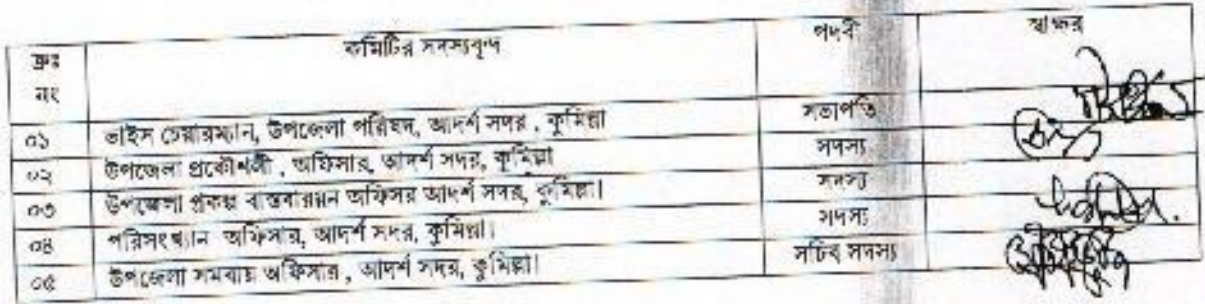 ক্রঃ নং কমিটির সদস্যবৃন্দ পদবী স্বাক্ষর
০১ ভাইস চেয়ারম্যান, উপজেলা পরিষদ, আদর্শ সদর , কুমিল্লা সভাপতি
০২ উপজেলা প্রকৌশলী , অফিসার, আদর্শ সদর, কুমিল্লা সদস্য
০৩ উপজেলা প্রকল্প বাস্তবারয়ন অফিসর আদর্শ সদর, কুমিল্লা। সদস্য
০৪ পরিসংখ্যান অফিসার, আদর্শ সদর, কুমিল্লা। সদস্য
০৫ উপজেলা সমবায় অফিসার , আদর্শ সদর, কুমিল্লা। সচিব সদস্য